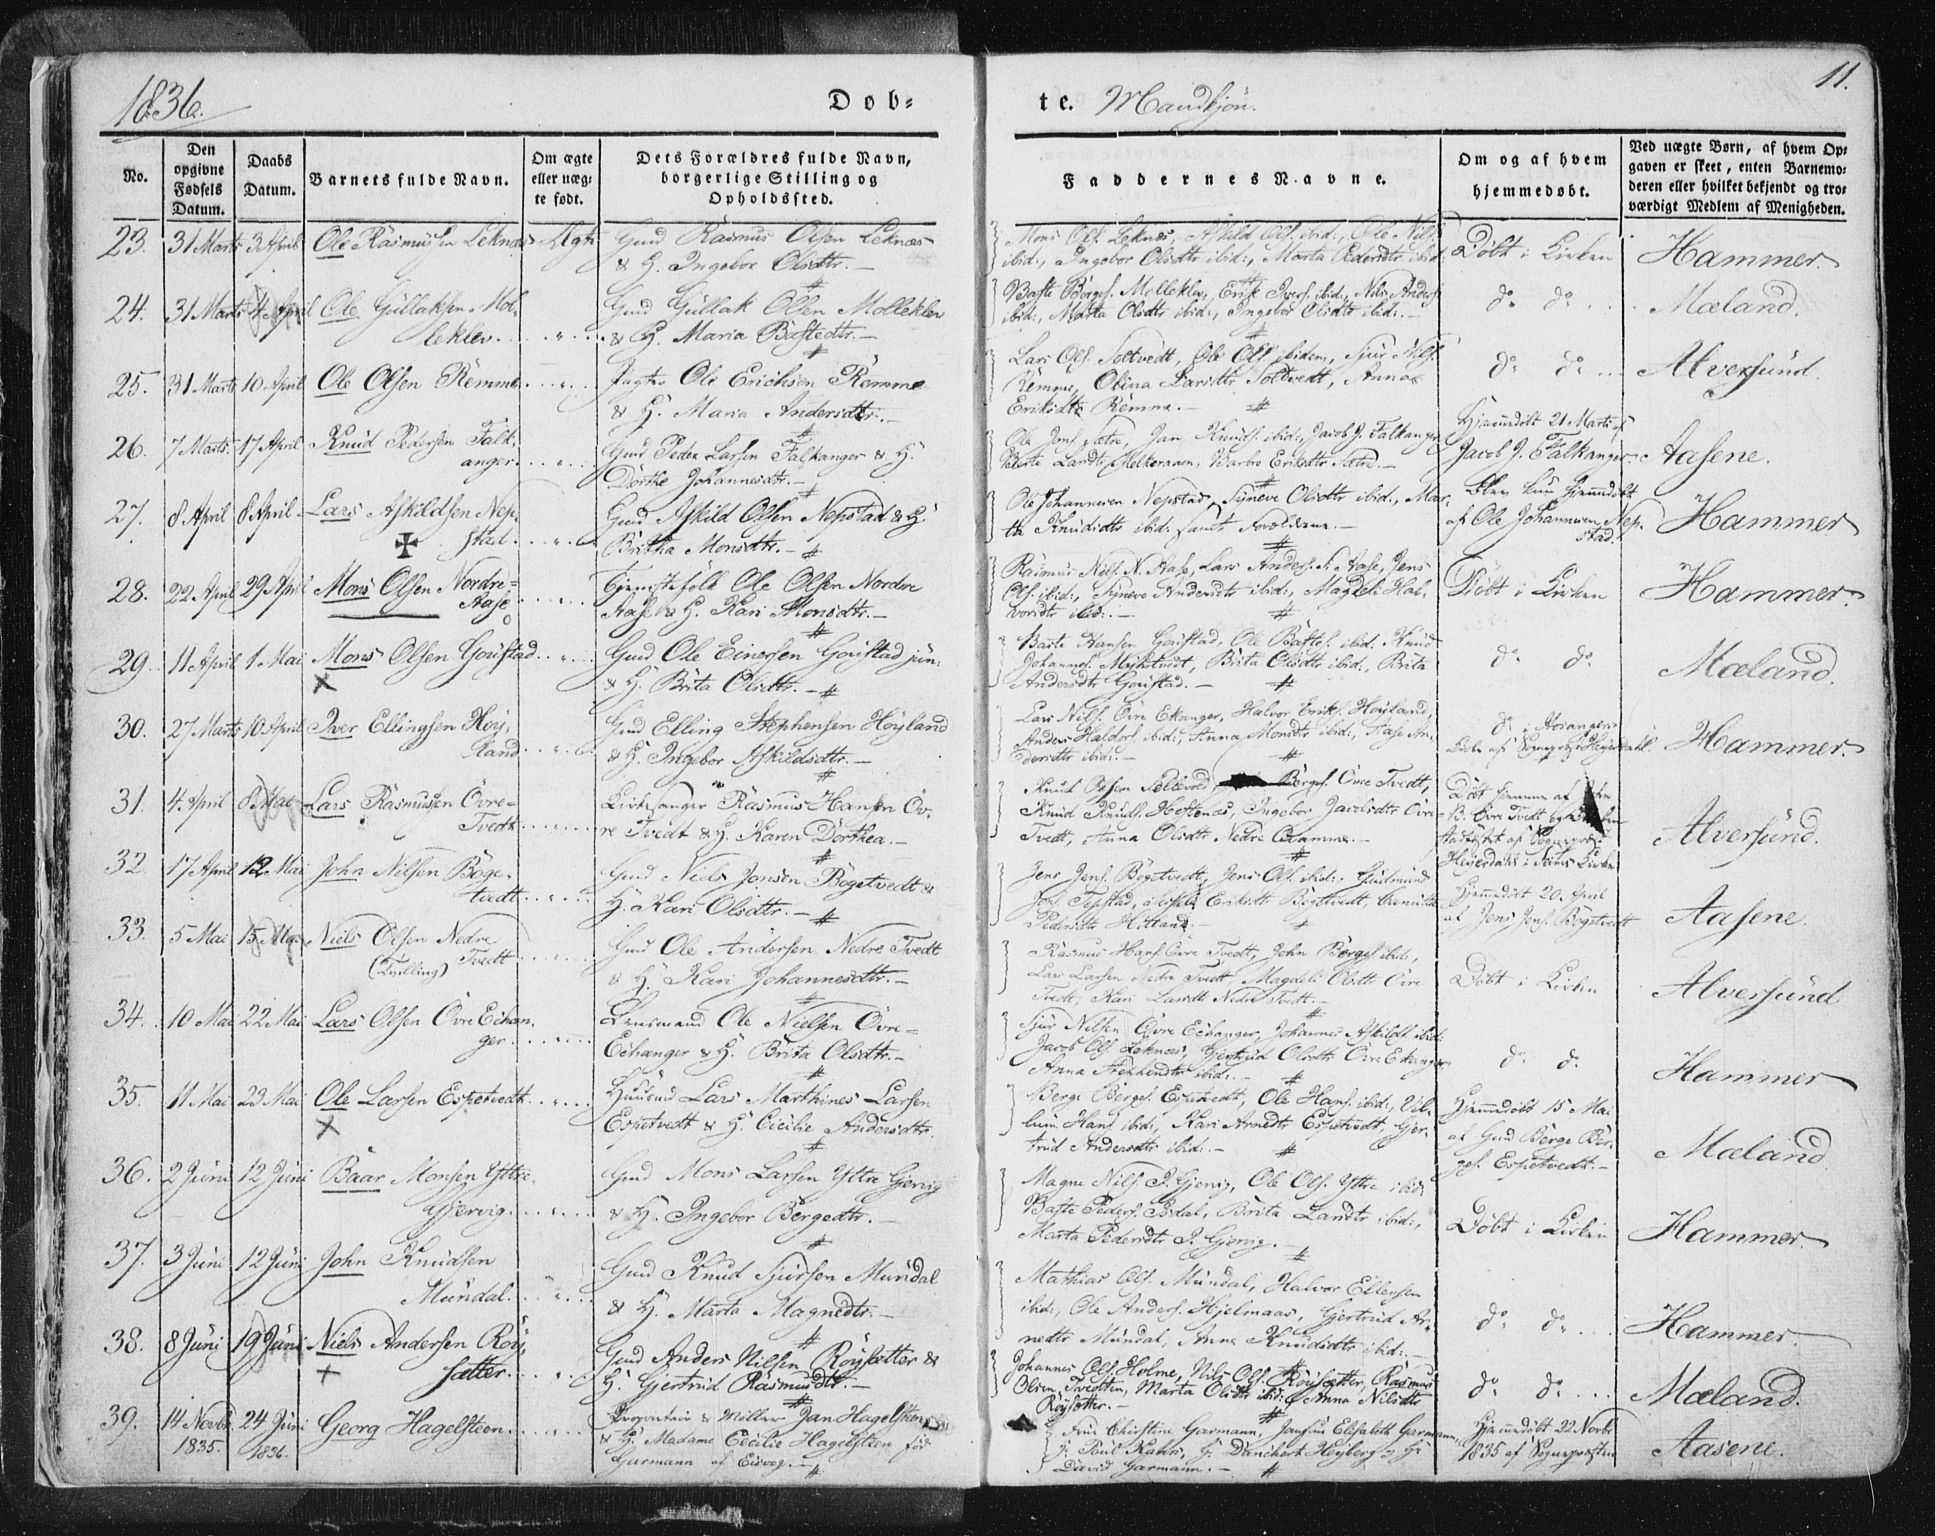 1836.
Dob-
te. Mandkjön.
11.
No.
Den opgivne Fødsels Datum.
Daabs Datum.
Barnets fulde Navn.
Om ægte eller uægte født.
Dets Forældres fulde Navn, borgerlige Stilling og Opholdssted.
Faddernes Navne.
Om og af hvem hjemmedøbt.
Ved uægte Børn, af hvem Opgaven er skeet, enten Barnemoderen eller hvilket bekjendt og troværdigt Medlem af Menigheden.
23. 31 Marts 3 April Ole Rasmussen Leknæs Ægte Gmd Rasmus Olsen Leknæs
& H. Ingebor Olsdtr.
Mons Ols. Leknæs, Askild Ols. ibid:, Ole Nils.
ibid:, Ingebor Olsdtr ibid:, Marta Pedersdtr ibid:
Döbt i Kirken Hammer.
24. 31 Marts 4 April Ole Gullaksen Mol-
leklev.
Gmd Gullak Olsen Molleklev
& H. Maria Bastedtr.
Baste Börges. Molleklev, Erik Ivers. ibid:, Nils Anders.
ibid:, Marta Olsdtr ibid:, Ingebor Olsdtr ibid:
do do Mæland.
25. 31 Marts 10 April Ole Olsen Remme
Ole Erichsen Remme
& H. Maria Andersdtr.
Lars Ols. Toltvedt, Ole Ols. ibidem, Sjur Nils.
Remme, Olina Larsdtr Toltvedt, Anna
Eriksdtr Remme.
do do Alversund.
26. 7 Marts 17 April Knud Pedersen Falk-
anger
Gmd Peder Larsen Falkanger & H.
Dorthe Johannesdtr.
Ole Jons. Sætre, Jan Knuds. ibid:, Jacob J. Falkanger
Barbro Eriksdtr Sætre.
Hjemmedöbt 21 Marts af
Jacob J. Falkanger. Aasene.
27. 8 April 8 April Lars Askildsen Nep-
stad
Gmd Askild Olsen Nepstad & H.
Britha Monsdtr.
Ole Johannesen Nepstad, Synneve Olsdtr ibid:, Mar-
tha Knudsdtr ibid: samt Forældrene.
Blev kun hjemmedöbt
af Ole Johannesen Nep-
stad. Hammer
28. 22 April 29 April Mons Olsen Nordre-
Aase
Tjenestefolk Ole Olsen Nordre
Aase & H. Kari Monsdtr.
Rasmus Nils. N. Aase, Lars Anders. N. Aase, Jens
Ols. ibid:, Synneve Andersdtr ibid:, Magdeli Hal-
vorsdtr ibid:
Döbt i Kirken Hammer.
29. 11 April 1 Mai Mons Olsen Goustad
Gmd Ole Einersen Goustad jun:
& H. Brita Olsdtr.
Baste Hansen Goustad, Ole Bastes. ibid: Knud
Johannes. Mykletvedt, Brita Olsdtr ibid:, Brita
Andersdtr Goustad.
do do Mæland.
30. 27 Marts 10 April Iver Ellingsen Höy-
land
Gmd Elling Stephensen Höyland
& H. Ingebor Askildsdtr.
Lars Nils. Övre Ekanger, Halvor Erik. Höyland,
Anders Haldors. ibid:, Anna Monsdtr ibid:, Aase An-
dersdtr ibid:
do i Hosanger
Hammer.
31. 4 April 8 Mai Lars Rasmussen Övre-
Tvedt
Kirkesanger Rasmus Hansen Öv-
re Tvedt & H. Karen Dorthea.
Börges. Övre Tvedt,
Ingebor Jacobsdtr Övre
Tvedt, Anna Olsdtr Nedre
Alversund.
32 17 April 12 Mai John Nilsen Böge-
tvedt
Gmd Niels Jonsen Bögetvedt &
H. Kari Olsdtr.
Jens Jens. Bögetvedt, Jens Ols. ibid:, Gudmund
Eriksdtr Bögetvedt,
Pedersdtr Hitland.
Hjemmedöbt 20 April
af Jens Jens. Bögetvedt Aasene.
33. 5 Mai 15 Mai Niels Olsen Nedre
Tvedt
(Tvilling)
Gmd Ole Andersen Nedre Tvedt
& H. Kari Johannesdtr.
Rasmus Hans. Övre Tvedt, John Börges. ibid:,
Lars Larsen Nedre Tvedt, Magdeli Olsdtr Övre
Tvedt, Kari Larsdtr Nedre Tvedt.
Döbt i Kirken Alversund
34. 10 Mai 22 Mai Lars Olsen Övre Eckan-
ger
Lensmand Ole Nielsen Övre-
Echanger & H. Brita Olsdtr.
Sjur Nilsen Övre Echanger, Johannes Askilds. ibid:
Jacob Ols. Leknæs, Gjertrud Olsdtr Övre Ekanger
Anna ibid:
do do Hammer
35. 11 Mai 23 Mai Ole Larsen Espetvedt
Huusmd Lars Marthines Larsen
Espetvedt & H. Cicilie Andersdtr.
Berge Berges. Espetvedt, Ole Hans. ibid:, Vil-
lum Hans. ibid:, Kari Arnedtr Espetvedt, Gjer-
trud Andersdtr ibid:
Hjemmedöbt 15 Mai
af Gmd Berge Ber-
ges. Espetvedt. Mæland
36. 2 Juni 12 Juni Baar Monsen Yttre
Gjervig
Gmd Mons Larsen Yttre Gjervig
& H. Ingebor Bergedtr.
Magne Nils. I. Gjervig, Ole Ols. Yttre ibid:
Baste Peders. Brita Larsdtr ibid:,
Marta Pedersdtr I. Gjervig.
Döbt i Kirken Hammer.
37. 3 Juni 12 Juni John Knudsen
Mundal
Gmd Knud Sjursen Mundal
& H. Marta Magnedtr.
Mathias Ols. Mundal, Halvor Ellersen
ibid:, Ole Anders. Hjelmaas, Gjertrud Ar-
nedtr Mundal, Anna Knudsdtr ibid:
do do Hammer.
38. 8 Juni 19 Juni Niels Andersen Röy-
sætter
Gmd Anders Nilsen Röysætter &
H. Gjertrud Rasmusdtr.
Johannes Ols. Holme, Nils Ols. Röysætter, Rasmus
Olsen Tveitten, Marta Olsdtr ibid:, Anna Nilsdtr
Röysætter.
do do Mæland.
39. 14 Novbr 1835. 24 Juni 1836. Georg Hagelsteen
Proprietair & Jan Hagelsteen
& H. Madame Cecilie Hagelsteen föd
Garmann af Eisvog.
Frue Christine Garmann, Jomfrue Elisabeth Garmann,
H. Danckert Heyberg & Hr
David Garmann.
Hjemmedöbt 22 Novbr
1835 af Sognepræsten Aasene.